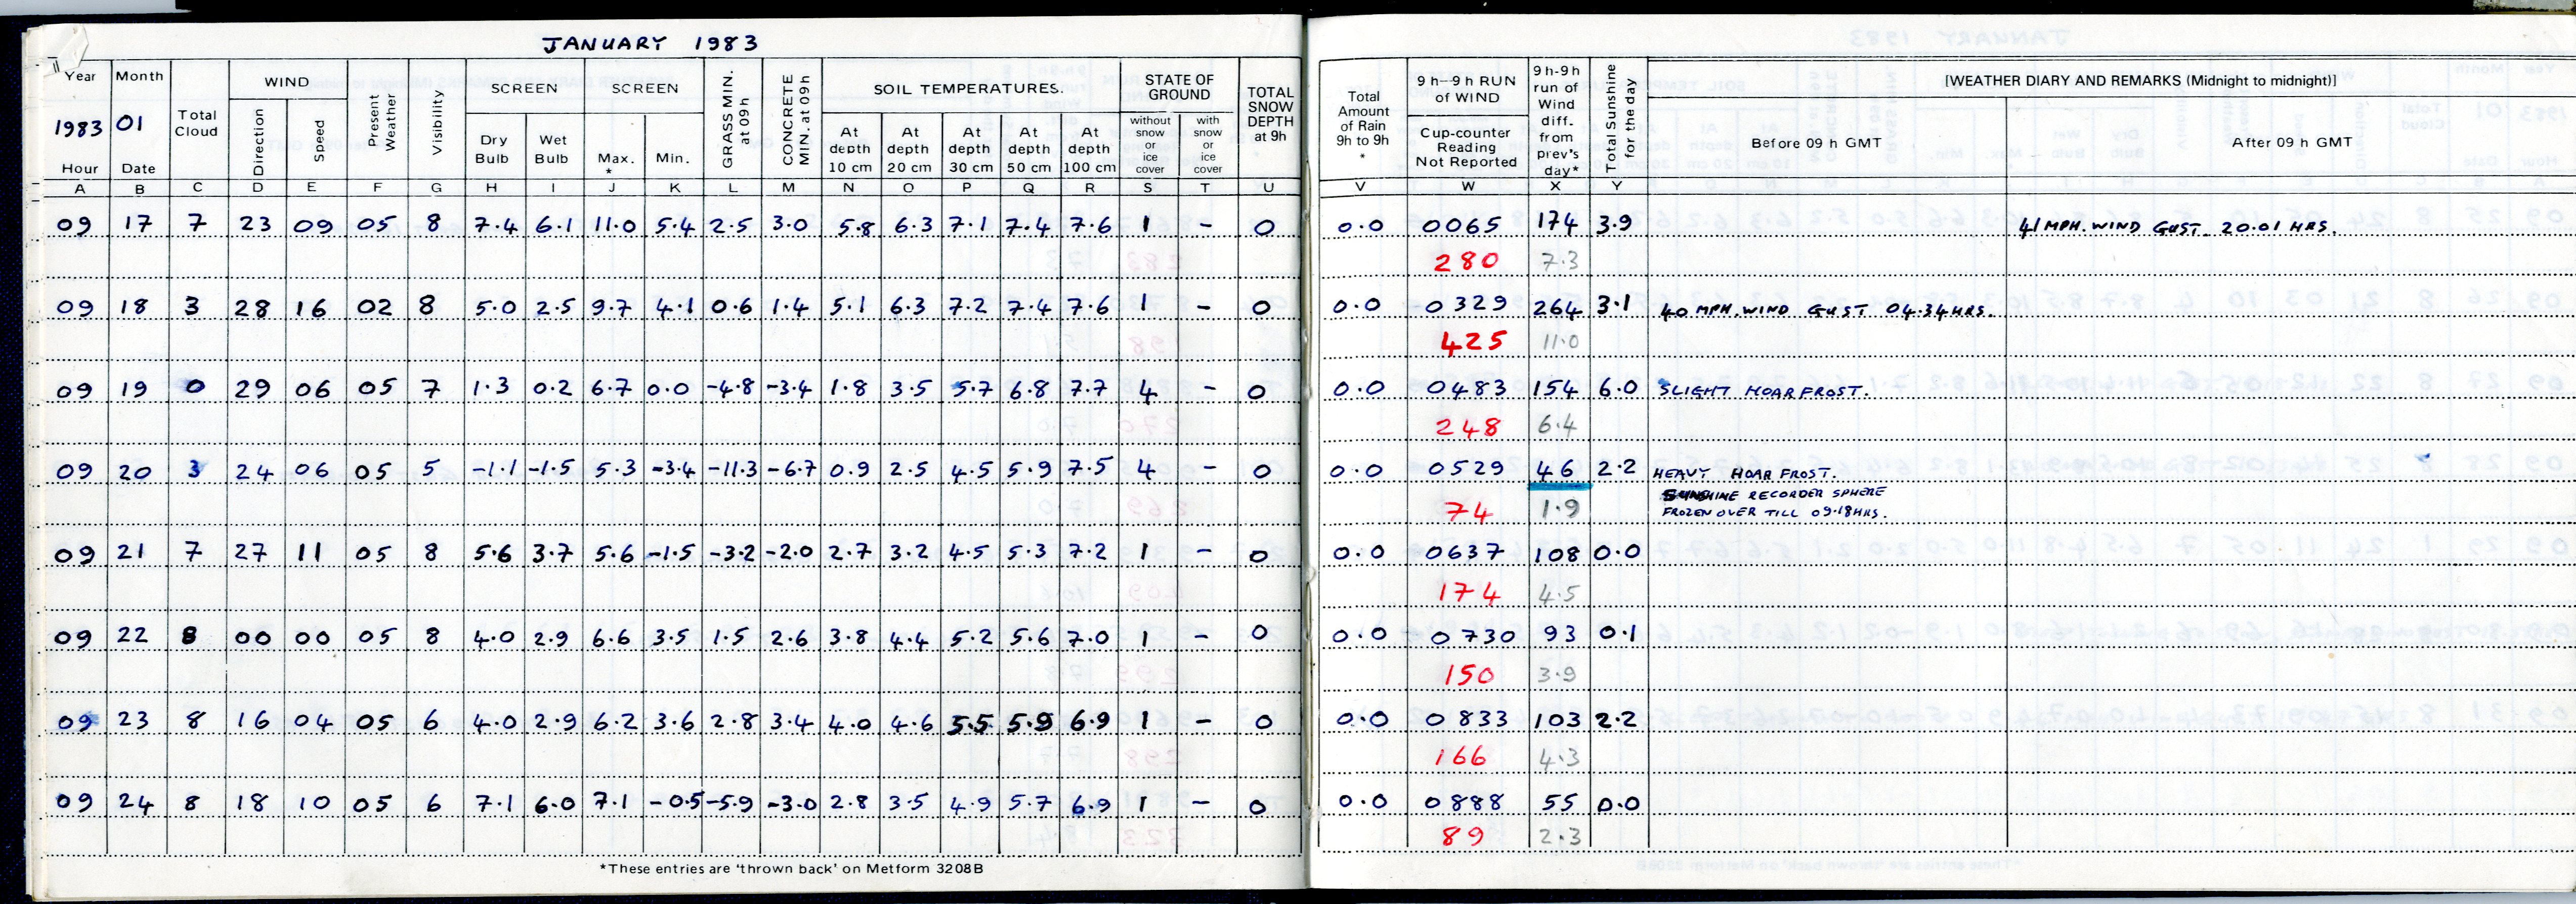 JANUARY 1983
Year Month Total Cloud WIND Present Weather Visibility SCREEN SCREEN GRASS MIN. at 09h CONCRETE MIN. at 09h SOIL TEMPERATURES. STATE OF GROUND TOTAL SNOW DEPTH at 9h Total Amount of Rain 9h to 9h * 9 h-9h RUN of WIND 9 h-9h run of Wind diff. from prev's day* Total Sunshine for the day [WEATHER DIARY AND REMARKS (Midnight to midnight)]
1983 01
Hour Date Direction Speed Dry Bulb Wet Bulb Max. * Min. At depth 10 cm At depth 20 cm At depth 30 cm At depth 50 cm At depth 100 cm without snow or ice cover with snow or ice cover Cup-counter Reading Not Reported Before 09 h GMT After 09 h GMT
A B C D E F G H I J K L M N O P Q R S T U V W X Y
09 17 7 23 09 05 8 7.4 6.1 11.0 5.4 2.5 3.0 5.8 6.3 7.1 7.4 7.6 1 - 0 0.0 0065 174 3.9 41 MPH. WIND GUST 20.01 HRS.
280 7.3
09 18 3 28 16 02 8 5.0 2.5 9.7 4.1 0.6 1.4 5.1 6.3 7.2 7.4 7.6 1 - 0 0.0 0329 264 3.1 40 MPH. WIND GUST 04.34 HRS.
425 11.0
09 19 0 29 06 05 7 1.3 0.2 6.7 0.0 -4.8 -3.4 1.8 3.5 5.7 6.8 7.7 4 - 0 0.0 0483 154 6.0 SLIGHT HOAR FROST.
248 6.4
09 20 3 24 06 05 5 -1.1 -1.5 5.3 -3.4 -11.3 -6.7 0.9 2.5 4.5 5.9 7.5 4 - 0 0.0 0529 46 2.2 HEAVY HOAR FROST.
SUNSHINE RECORDER SPHERE
74 1.9 FROZEN OVER TILL 09.18 HRS.
09 21 7 27 11 05 8 5.6 3.7 5.6 -1.5 -3.2 -2.0 2.7 3.2 4.5 5.3 7.2 1 - 0 0.0 0637 108 0.0
174 4.5
09 22 8 00 00 05 8 4.0 2.9 6.6 3.5 1.5 2.6 3.8 4.4 5.2 5.6 7.0 1 - 0 0.0 0730 93 0.1
150 3.9
09 23 8 16 04 05 6 4.0 2.9 6.2 3.6 2.8 3.4 4.0 4.6 5.5 5.9 6.9 1 - 0 0.0 0833 103 2.2
166 4.3
09 24 8 18 10 05 6 7.1 6.0 7.1 -0.5 -5.9 -3.0 2.8 3.5 4.9 5.7 6.9 1 - 0 0.0 0888 55 0.0
89 2.3
*These entries are 'thrown back' on Metform 3208B